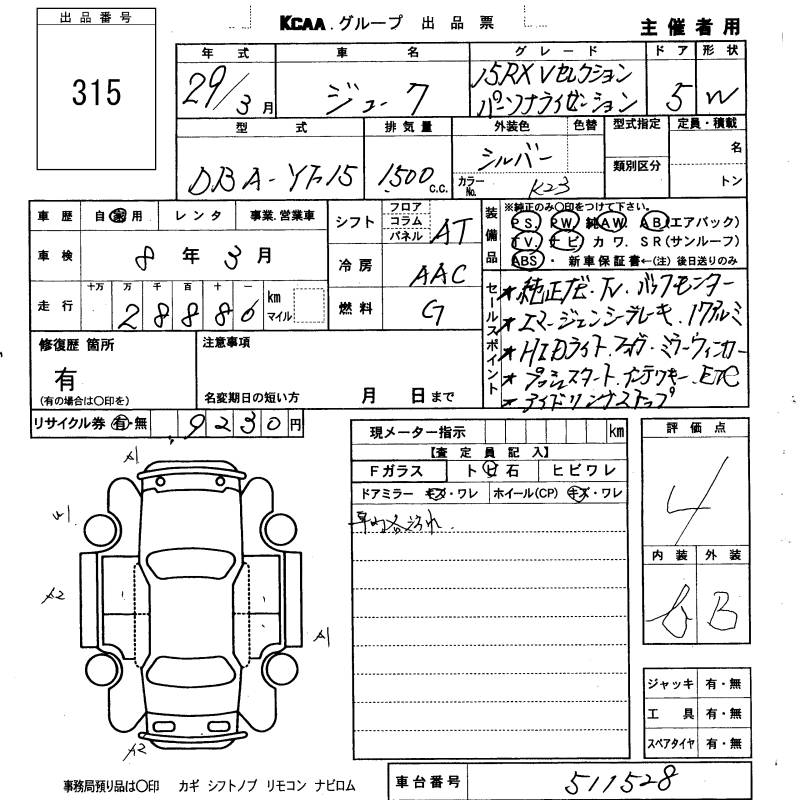 出品番号
315
KCAA.グループ 出品票
主催者用
年式 車名 グレード ドア 形状
29/3月 ジューク 15RX Vセレクション パーソナライゼーション 5 W
型式 排気量 外装色 色替 型式指定 定員・積載
DBA-YF15 1500c.c. シルバー 名
カラーNo. K23 類別区分 トン
車歴 自家用 レンタ 事業.営業車
車検 8年3月
走行 十万 万 千 百 十 一
28886 km マイル
シフト フロア コラム パネル AT
冷房 AAC
燃料 G
装備品 ※純正のみ〇印をつけて下さい。
PS. PW 純AW. AB(エアバック)
TV. ナビ カワ. SR(サンルーフ)
ABS・新車保証書←(注)後日送りのみ
セールスポイント
★純正ナビ.TV.バックモニター
★エマージェンシーブレーキ.17アルミ
★HIDライト.フォグ.ミラーウィンカー
★プッシュスタート.インテリキー.ETC
★アイドリングストップ
修復歴 箇所
有
(有の場合は〇印を)
注意事項
名変期日の短い方 月 日まで
リサイクル券 有・無 9230円
現メーター指示 km
【査定員記入】
Fガラス トビ石 ヒビワレ
ドアミラー キズ・ワレ ホイール(CP) キズ・ワレ
車内汚れ.
評価点
4
内装 外装
B
A1
A1
A2
A1
A2
ジャッキ 有・無
工具 有・無
スペアタイヤ 有・無
事務局預り品は〇印 カギ シフトノブ リモコン ナビロム
車台番号 511528